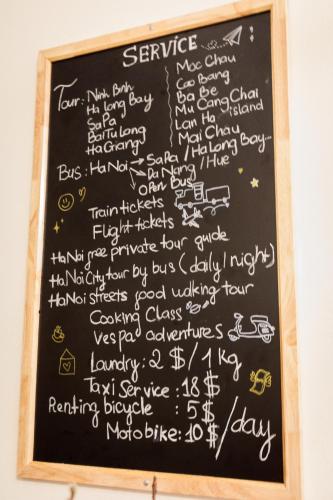 SERVICE
Tour: Ninh Binh
Ha Long Bay
SaPa
BaiTuLong
HaGiang
Moc Chau
Cao Bang
Ba Be
Mu Cang Chai
Lan Ha island
Mai Chau
Bus: HaNoi → SaPa / HaLong Bay...
Da Nang / Hue
Open Bus
Train tickets
Flight tickets
HaNoi free private tour guide
HaNoi City tour by bus (daily/night)
HaNoi streets food walking tour
Cooking Class
Vespa adventures
Laundry: 2 $/1kg
Taxi Service: 18$
Renting bicycle : 5$
Motobike: 10$ /day